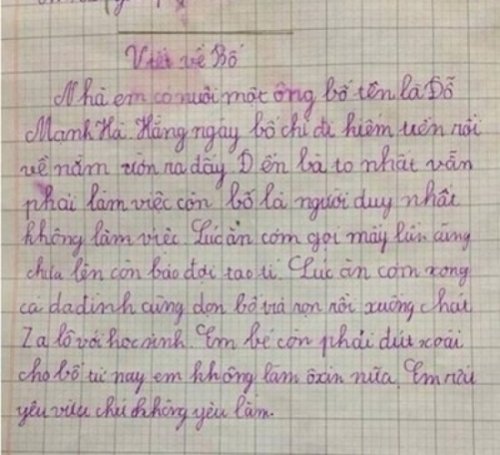 Viết về Bố
Nhà em có nuôi một ông bố tên là Đỗ
Mạnh Hà. Hằng ngày bố chỉ đi kiếm tiền rồi
về nằm ườn ra đấy. Đến bà to nhất vẫn
phải làm việc còn bố là người duy nhất
không làm việc. Lúc ăn cơm gọi mấy lần cũng
chưa lên còn bảo đợi tao tí. Lúc ăn cơm xong
cả da dình cũng dọn bố vả rọn rồi xuống chát
Za lô với học sinh. Em bé còn phải dút xoài
cho bố từ nay em không làm ôxin nữa. Em rất
yêu vừa chứ không yêu lắm.